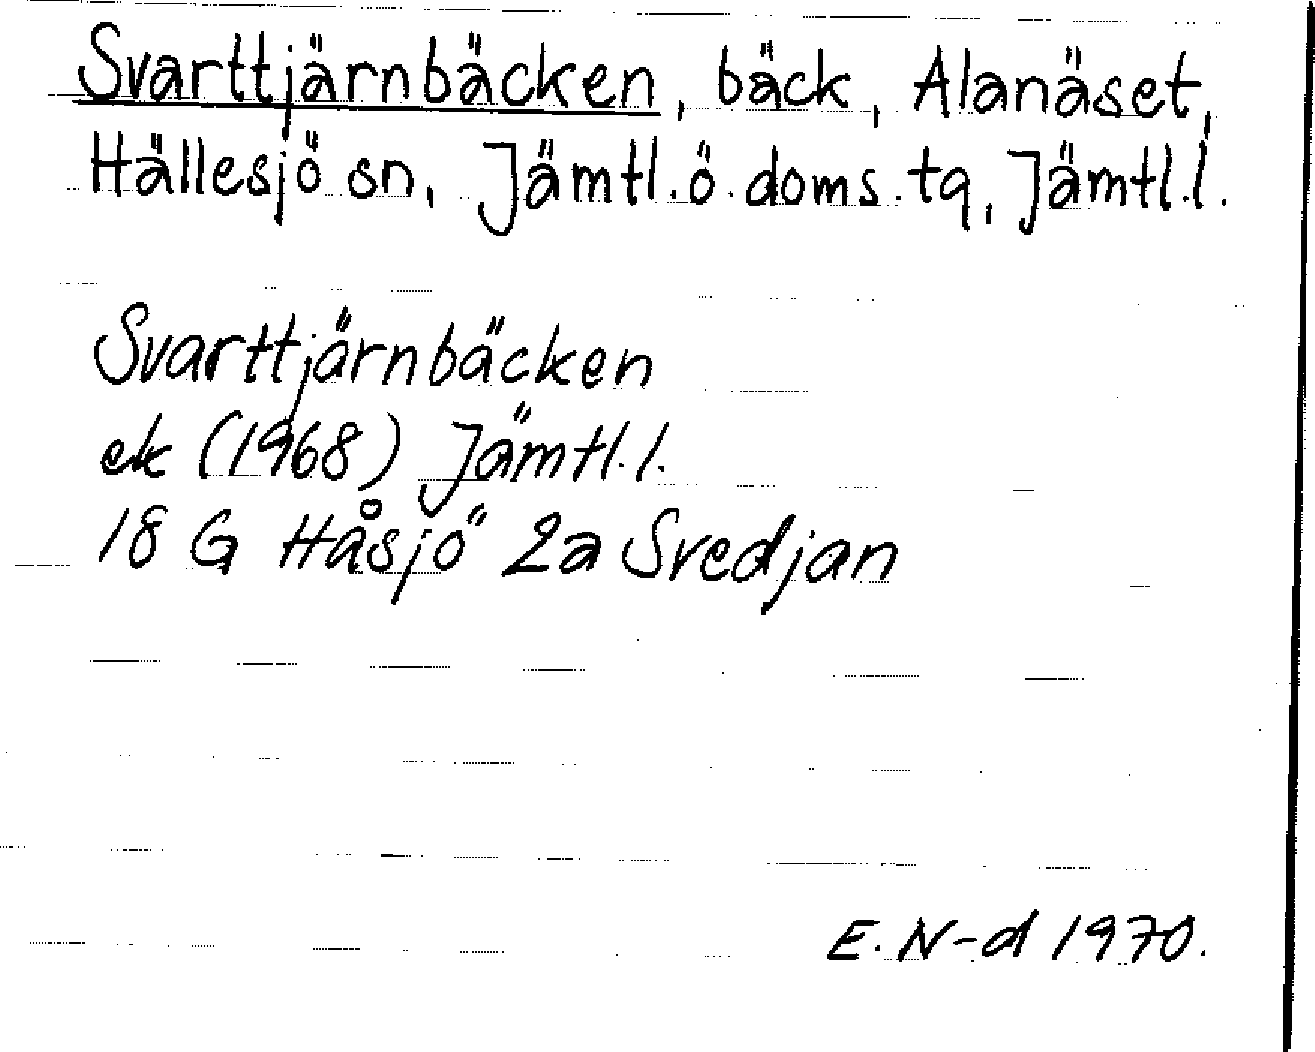 Svarttjärnbäcken, bäck, Alanäset,
Hällesjö sn, Jämtl.ö.doms.tg, Jämtl.l.
Svarttjärnbäcken
ek (1968) Jämtl.l.
18 G Håsjö 2a Svedjan
E. N-d 1970.